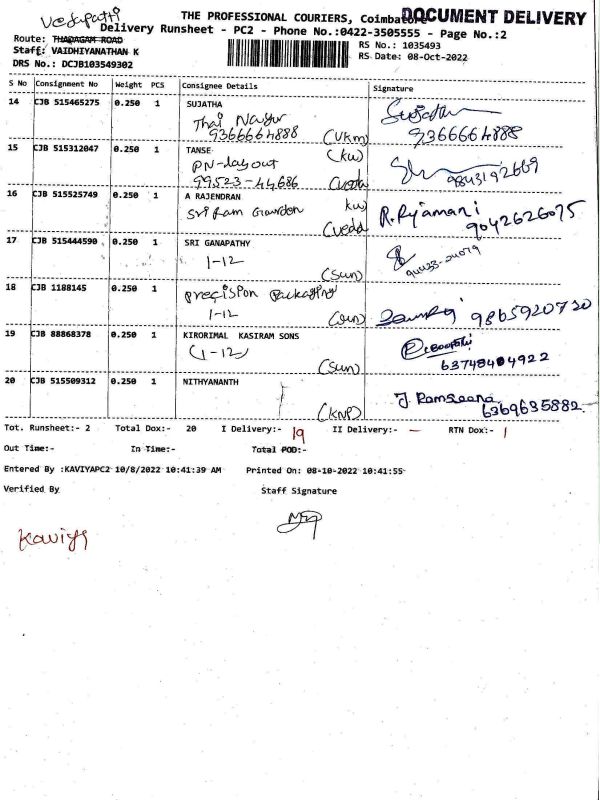 Vedapatti
THE PROFESSIONAL COURIERS, Coimbatore
DOCUMENT DELIVERY
Delivery Runsheet - PC2 - Phone No.:0422-3505555 - Page No.:2
Route: THADAGAM ROAD
RS No.: 1035493
Staff: VAIDHIYANATHAN K
RS Date: 08-Oct-2022
DRS No.: DCJB103549302
S No Consignment No Weight PCS Consignee Details Signature
14 CJB 515465275 0.250 1 SUJATHA
Thai Nagar
9366664888 (Vkm) 9366664888
15 CJB 515312047 0.250 1 TANSE
(kw)
PN-layout
99523-44686 9843192669
16 CJB 515525749 0.250 1 A RAJENDRAN kw)
Sri Ram Garden R.Rjamani
(vedd) 9042626075
17 CJB 515444590 0.250 1 SRI GANAPATHY
1-12
(Sun)
18 CJB 1188145 0.250 1 precision Packaging
1-12 (Sun) 9865920730
19 CJB 88868378 0.250 1 KIRORIMAL KASIRAM SONS
(1-12)
(Sun)
20 CJB 515509312 0.250 1 NITHYANANTH
(KNP) 6369635882
Tot. Runsheet:- 2 Total Dox:- 20 I Delivery:- 19 II Delivery:- — RTN Dox:- 1
Out Time:- In Time:- Total POD:-
Entered By :KAVIYAPC2 10/8/2022 10:41:39 AM Printed On: 08-10-2022 10:41:55
Verified By Staff Signature
Kaviya